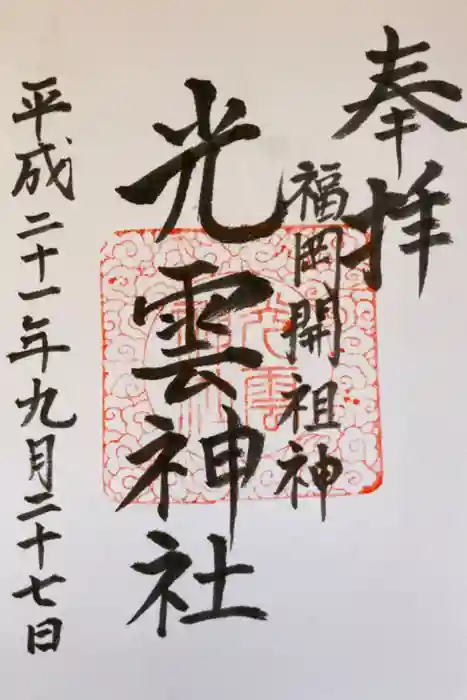 奉拝
福岡開祖神
光雲神社
平成二十一年九月二十七日